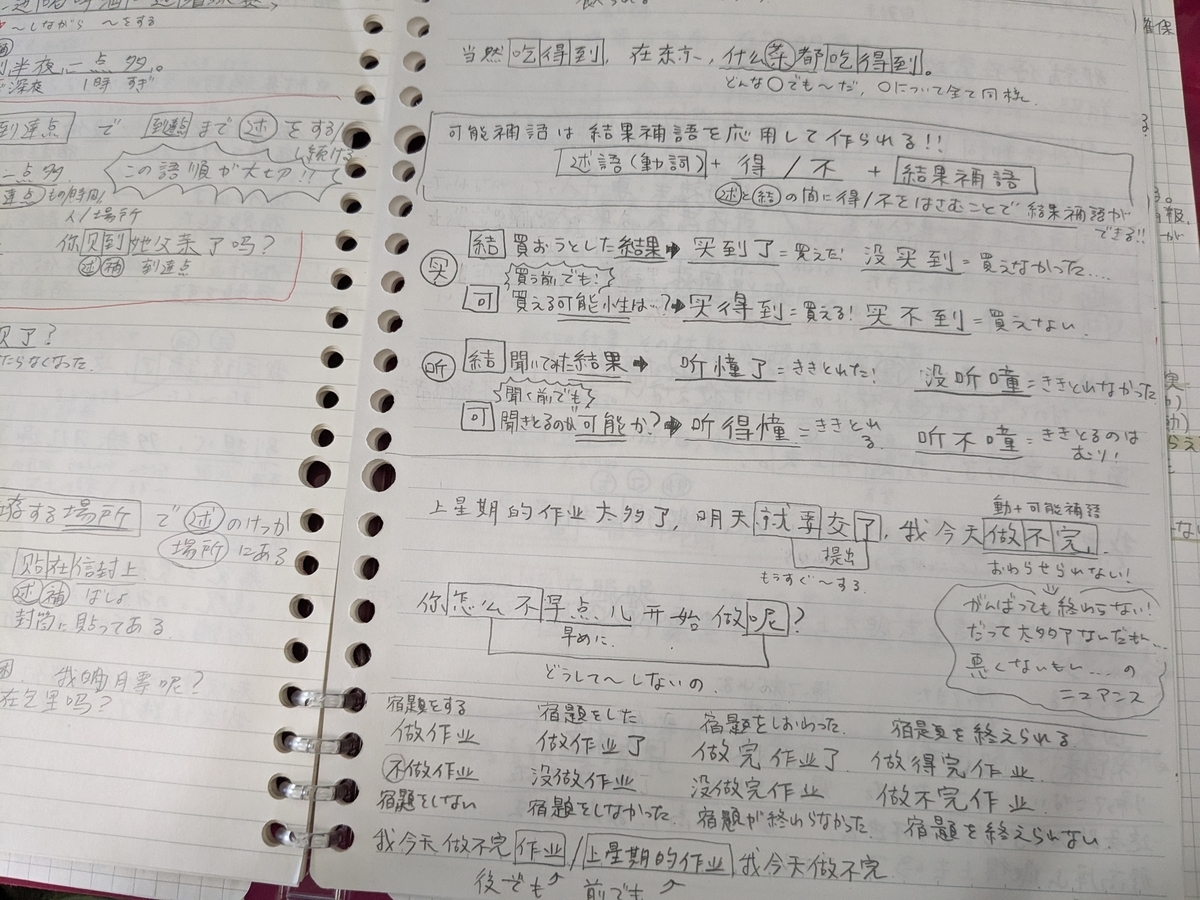 ～しながら ～をする
半夜一点多。
深夜 1時 すぎ
到達点 で 到達点 まで 述 をする/し続ける
この語順が大切!?
一点多
人/場所
你 贝到 她父亲了吗?
述 補 到達点
贝了?
たらなくなった
存する場所 で 述 のけっか
場所 にある
贴在信封上
述 補 ばしょ
封筒に貼ってある
我的月票呢?
在包里吗?
当然吃得到, 在东京, 什么菜都吃得到。
どんな〇でも～だ, 〇について全て同様。
可能補語は 結果補語を応用して作られる!!
述語(動詞) + 得 / 不 + 結果補語
述と結の間に得/不をはさむことで結果補語ができる!!
买
結 買おうとした結果➡ 买到了=買えた! 没买到=買えなかった....
買う前でも!
可 買える可能性は…?➡买得到=買える! 买不到=買えない
听
結 聞いてみた結果➡ 听憧了=ききとれた! 没听瞳=ききとれなかった
聞く前でも
可 聞きとるのが可能か?➡听得憧=ききとれる 听不瞳=ききとるのはむり!
動+可能補語
上星期的作业太多了, 明天就要交了, 我今天做不完.
提出
もうすぐ～する
おわらせられない!
がんばっても終わらない!
だって太多了なんだもん…
悪くないもん.... の
ニュアンス
你怎么不早点儿开始做呢?
早めに
どうして～しないの
宿題をする 宿題をした 宿題をしおわった 宿題を終えられる
做作业 做作业了 做完作业了 做得完作业
不做作业 没做作业 没做完作业 做不完作业
宿題をしない 宿題をしなかった 宿題が終わらなかった 宿題を終えられない
我今天做不完作业/上星期的作业我今天做不完
後でも 前でも